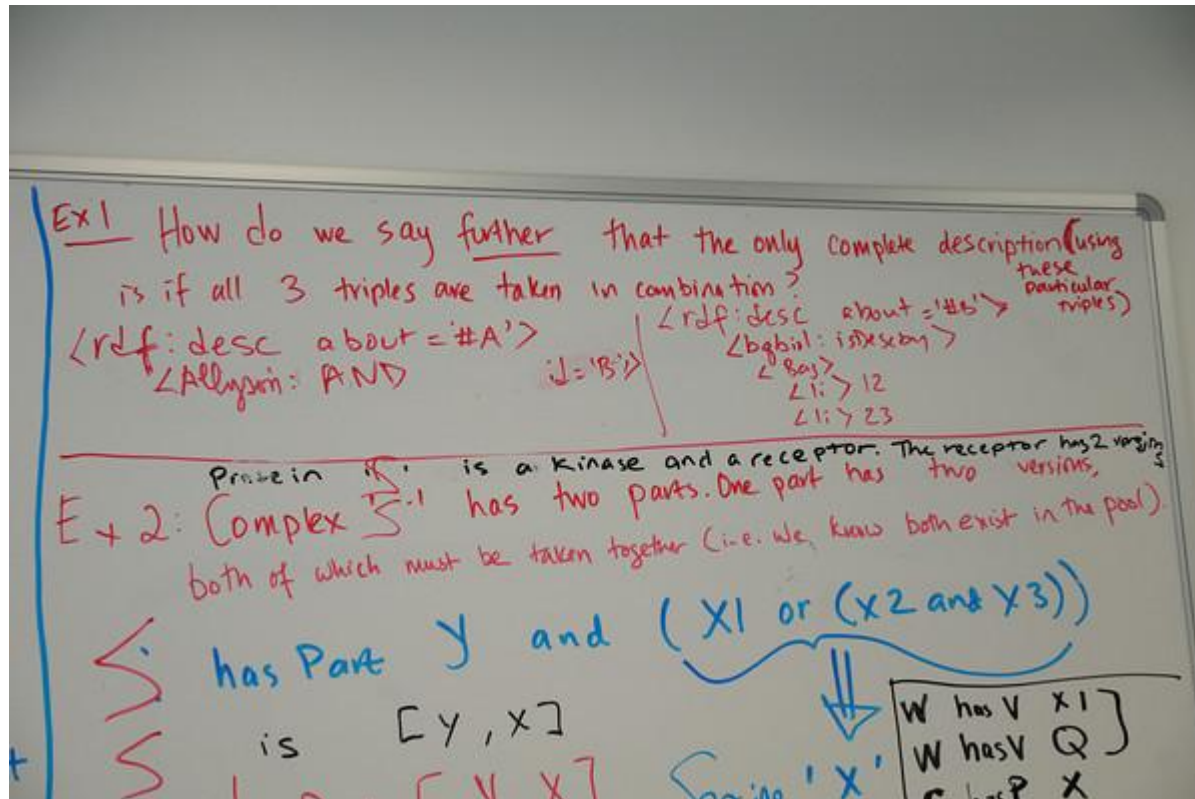 Ex1 How do we say further that the only complete description (using
these
particular
triples)
is if all 3 triples are taken in combination?
<rdf:desc about='#A'>
<Allyson: AND id='B'/>
<rdf:desc about='#B'>
<bqbiol: isDescby>
<Bag>
<li> 12
<li> 23
Protein is a kinase and a receptor. The receptor has 2 versions
Ex 2: Complex S has two parts. One part has two versions,
both of which must be taken together (i.e. we know both exist in the pool).
S has Part Y and (X1 or (X2 and X3))
is [Y, X]
S [Y X]
'X'
W has V X1
W has V Q
hasP X